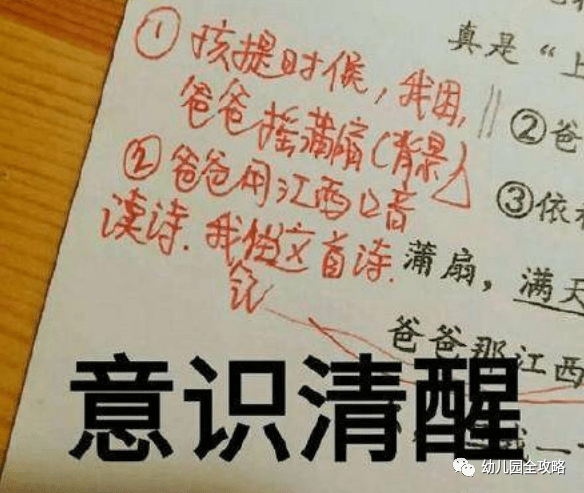 ①孩提时候,我困,
爸爸摇蒲扇(背景)
②爸爸用江西口音
读诗.我但这首诗.
记
真是“上
②爸
③依
蒲扇,满天
爸爸那江西
一
意识清醒
幼儿园全攻略